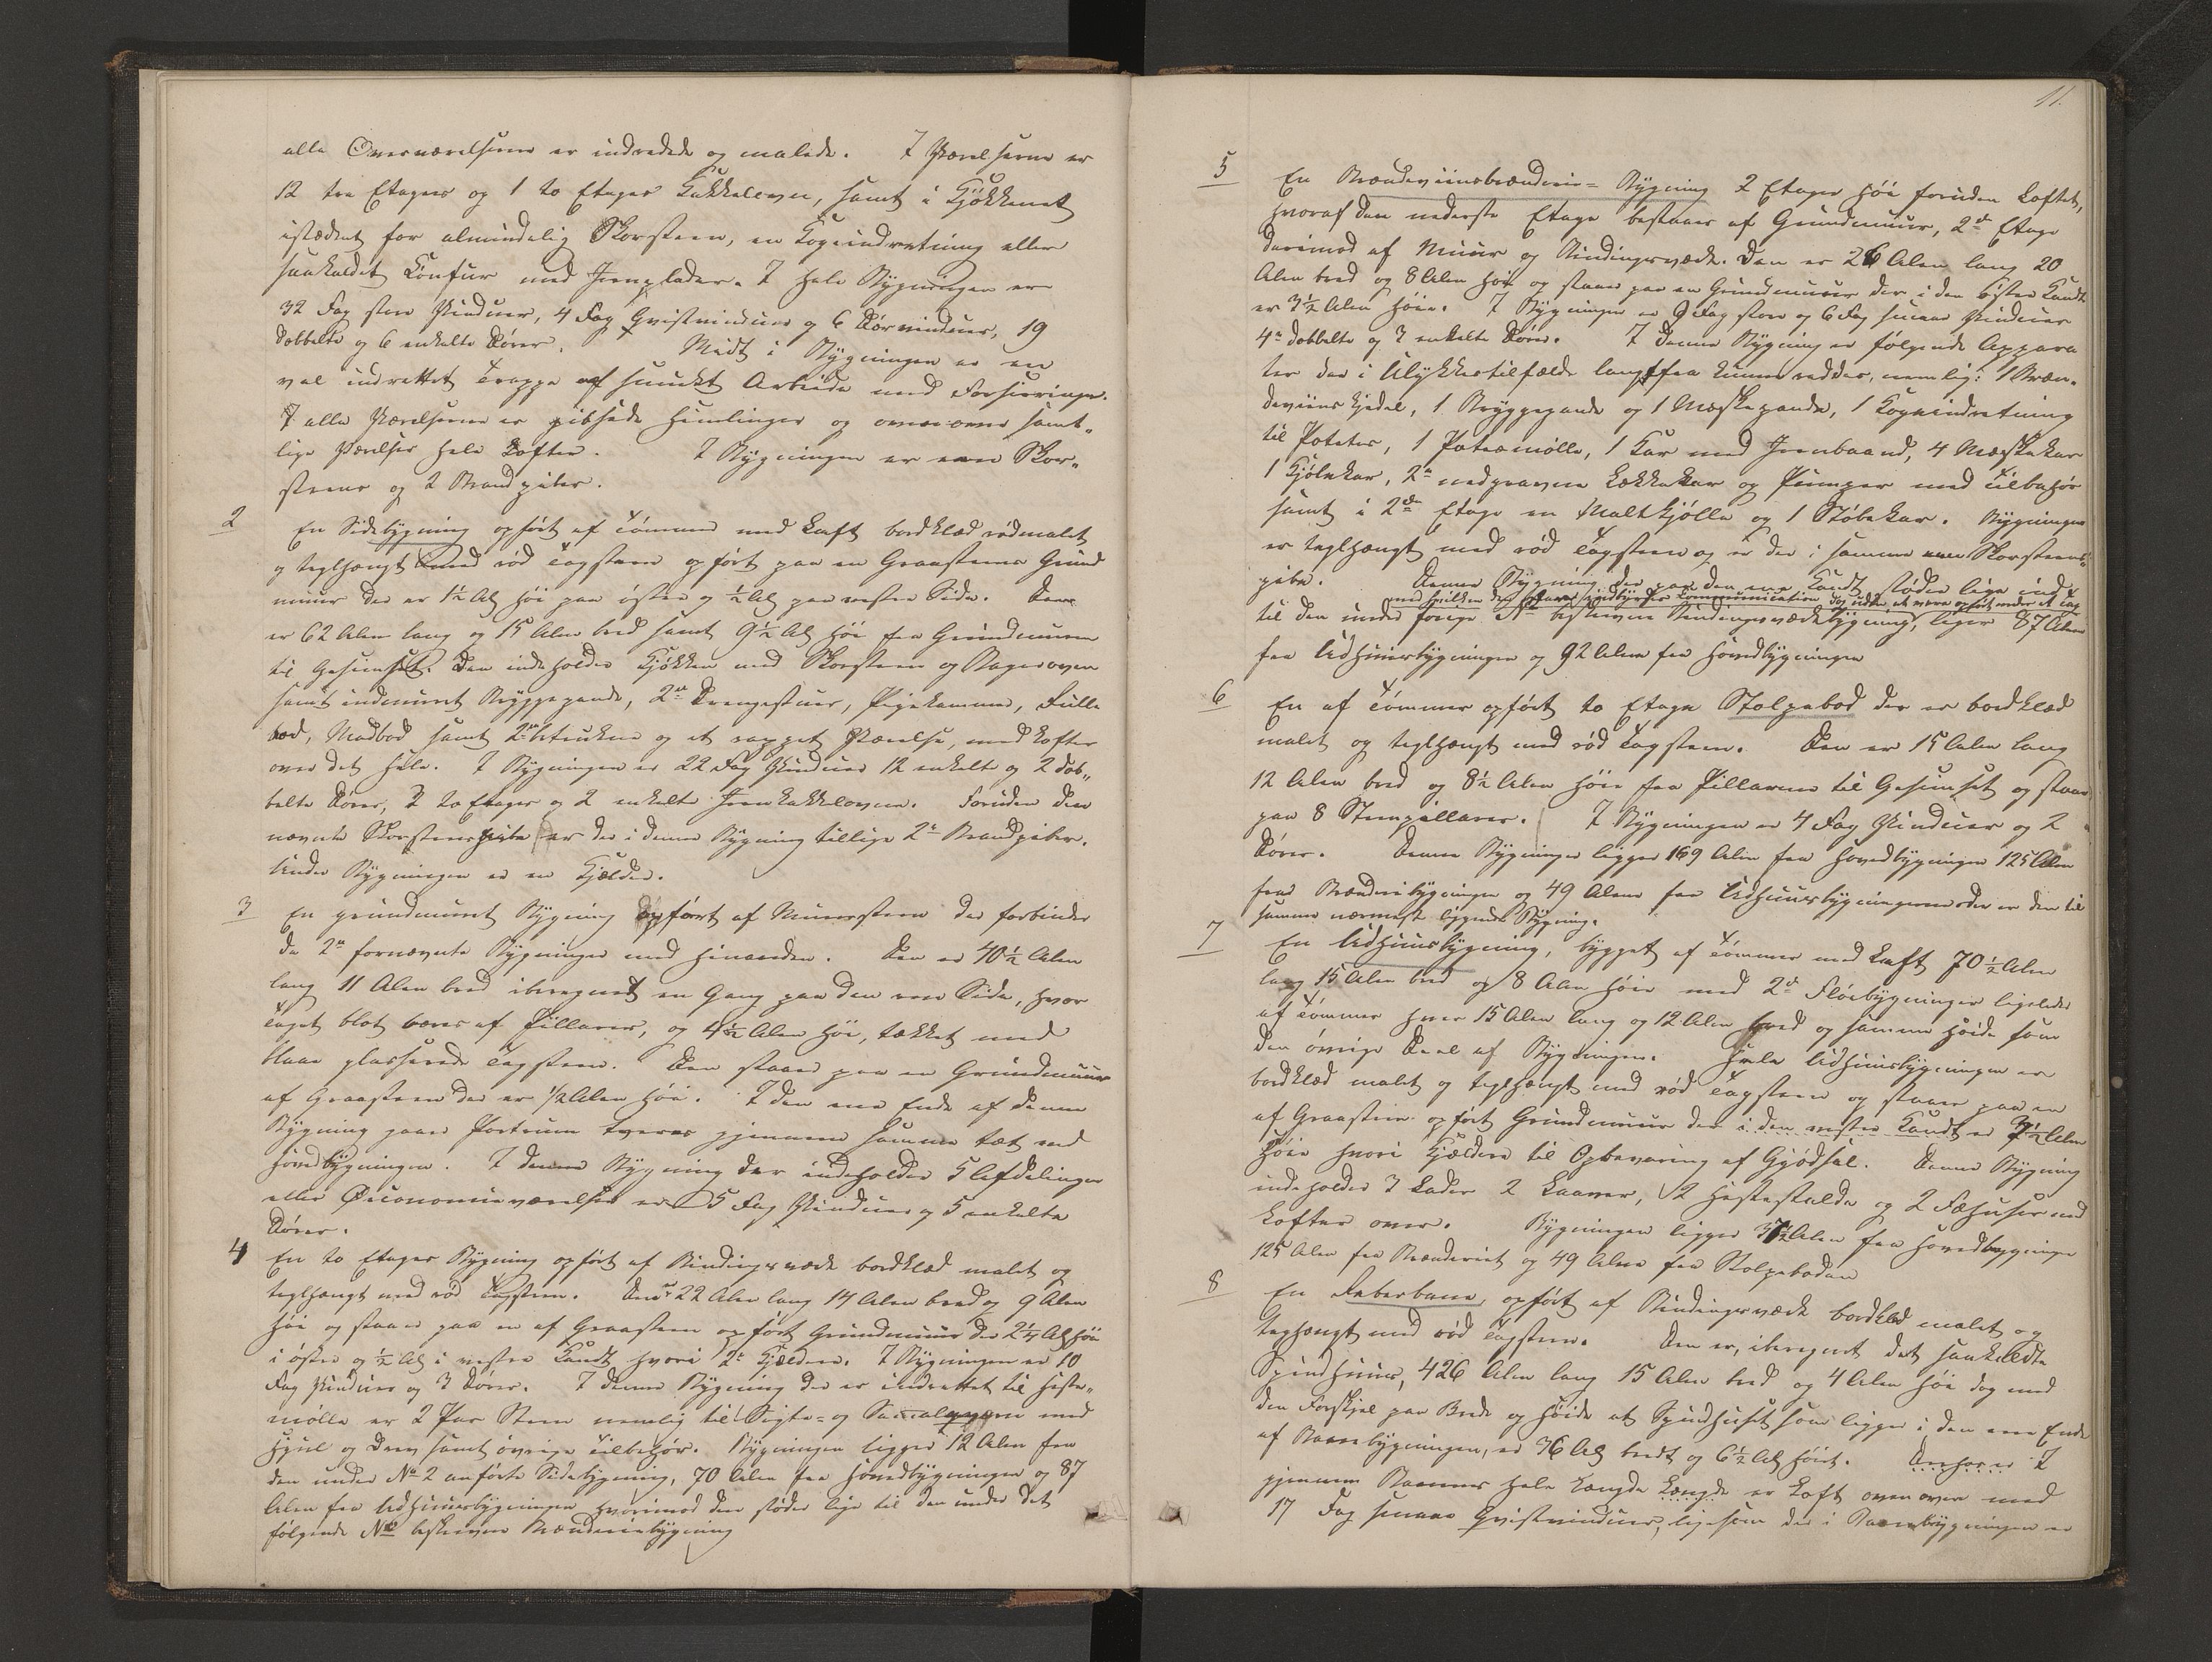 alle Overværelserne er indredede og malede. I Værelserne er
12 tre Etagers og 1 to Etages Kakkelovne, samt i Kjøkkenet
istædent for almindelig Skorsteen, en Kogeindretning eller
saakaldet Comfur med Jernplader. I hele Bygningen er
32 Fag store Vinduer, 4 Fag Qvistvinduer og 6 Dørvinduer, 19
dobbelte og 6 enkelte Døre. Midt i Bygningen er en
vel indrettet Trappe af smukt Arbeide med Forsiringer.
I alle Værelserne er gibsede Himlinger og oven over samt„
lige Værelser hele Lofter. I Bygningen er een Skor„
steens og 2 Brandpiber.
2 En Sidebygning opført af Tømmer med Laft bordklæd rødmalet
og teglhængt med rød Tagsteen opført paa en Graasteens Grund
muur der er 1½ Al høi paa østre og ½ Al paa vestre Side. Den
er 62 Alen lang og 15 Alen bred samt 9½ Al høi fra Grundmuren
til Gesimset. Den indeholder Kjøkken med Skorsteen og Bagerovn
samt indmuret Bryggepande, 2de Drengestuer, Pigekammer, Rulle
bod, Madbod samt 2de betrukne og et rappet Værelse, med Lofter
over det hele. I Bygningen er 22 Fag Vinduer 12 enkelte og 2 dob„
belte Døre, 3 to Etages og 2 enkelte Jernkakkelovne. Foruden den
nævnte Skorsteenspibe er der i denne Bygning tillige 2de Brandpiber.
Under Bygningen er en Kjælder.
3 En grundmuret Bygning opført af Muursteen der forbinder
de 2de fornævnte Bygninger med hinanden. Den er 40½ Alen
lang 11 Alen bred iberegnet en Gang paa den ene Side, hvor
Taget blot bæres af Pillarer, og 4½ Alen høi, tækket med
blaae glasserede Tagsteen. Den staaer paa en Grundmuur
af Graasteen der er ½ Alen høi. I den ene Ende af denne
Bygning gaaer Portrum tværs gjennem samme tæt ved
Hovedbygningen. I denne Bygning der indeholder 5 Afdelinger
eller Øconomieværelser er 5 Fag Vinduer og 5 enkelte
Døre.
4 En to Etages Bygning opført af Bindingsværk bordklæd malet og
teglhængt med rød Tagsteen. Den er 22 Alen lang 14 Alen bred og 9 Alen
høi og staaer paa en af Graasteen opført Grundmuur der 2¼ Al høi
i østre og ½ Al i vestre Kandt hvori 2de Kjældere. I Bygningen er 10
Fag Vinduer og 3 Døre. I denne Bygning der er indrettet til Heste„
mølle er 2 Par Steen nemlig til Sigte= og Samalqværn med
Hjul og Drev samt øvrige Tilbehør. Bygningen ligger 12 Alen fra
den under No 2 anførte Sidebygning, 70 Alen fra Hovedbygningen og 87
Alen fra Udhuusbygningen hvorimod den støder lige til den under det
følgende No beskrevne Brænderiebygning
11.
5 En Brændeviinsbrænderie= Bygning 2 Etager høi foruden Loftet,
hvoraf den nederste Etage bestaaer af Grundmuur, 2d Etage
derimod af Muur og Bindingsværk. Den er 26 Alen lang 20
Alen bred og 8 Alen høi og staaer paa en Grundmuur der i den østre Kandt
er 3½ Alen høi. I Bygningen er 9 Fag store og 6 Fag smaae Vinduer
4re dobbelte og 3 enkelte Døre. I denne Bygning er følgende Appara
ter der i Ulykkestilfælde let fra kunne reddes, nemlig: 1 Bræn„
deviins Kjedel, 1 Bryggepande og 1 Mæskepande, 1 Kogeindretning
til Poteter, 1 Potetmølle, 1 Kar med Jernbaand, 4 Mæskekar
1 Kjølekar, 2de nedgravne Lækkekar og Pumper med Tilbehør
samt i 2den Etage en Maltkjølle og 1 Støbekar. Bygningen
er teglhængt med rød Tagsteen og er der i samme een Skorsteens
pibe. Denne Bygning der paa den ene Kandt støder lige ind
med hvilken den staaer i indbyrdes Communication dog uden at være opført under et Tag
til den under forrige No beskrevne Bindingsværksbygning, ligger 87 Alen
fra Udhuusbygningen og 92 Alen fra Hovedbygningen
6 En af Tømmer opført to Etages Stolpebod der er bordklæd
malet og teglhængt med rød Tagsteen. Den er 15 Alen lang
12 Alen bred og 8½ Alen høi fra Pillarene til Gesimset og staaer
paa 8 Steenpillarer. I Bygningen er 4 Fag Vinduer og 2
Døre. Denne Bygning ligger 169 Alen fra Hovedbygningen 125 Alen
fra Brænderibygningen og 49 Alen fra Udhuusbygningen der er den til
samme nærmest liggende Bygning.
7 En Udhuusbygning, bygget af Tømmer med Laft 70½ Alen
lang 15 Alen bred og 8 Alen høi med 2de Fløibygninger ligeledes
af Tømmer hver 15 Alen lang og 12 Alen bred og samme Høide som
den øvrige Deel af Bygningen. Hele Udhuusbygningen er
bordklæd malet og teglhængt med rød Tagsteen og staaer paa en
af Graasteen opført Grundmuur der i den vestre Kandt er 3½ Alen
høi hvori Kjældere til Opbevaring af Gjødsel. Denne Bygning
indeholder 3 Lader 2 Laaver, 2 Hestestalde og 2 Fæhuse med
Lofter over. Bygningen ligger 37½ Alen fra Hovedbygningen
125 Alen fra Brænderiet og 49 Alen fra Stolpeboden
8 En Reberbane, opført af Bindingsværk bordklæd malet og
teglhængt med rød Tagsteen. Den er, iberegnet det saakaldte
Spindhuus, 426 Alen lang 15 Alen bred og 4 Alen høi dog med
den Forskjel paa Brede og Høide at Spindhuset som ligger i den ene Ende
af Banebygningen, er 36 Al bredt og 6½ Al høit. I
gjennem Banens hele Længde Længde er Loft oven over med
17 Fag smaae Qvistvinduer, ligesom der i Banebygningen er